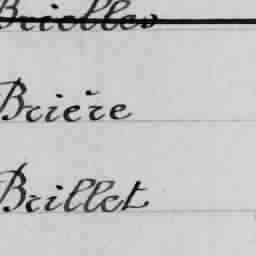 Briolles
Brière
Brillet